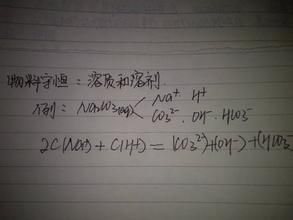 物料守恒：溶质和溶剂.
例：Na₂CO₃(aq) < Na⁺ · H⁺
CO₃²⁻ · OH⁻ · HCO₃⁻
2C(Na⁺) + C(H⁺) = (CO₃²⁻)+(OH⁻)+(HCO₃⁻